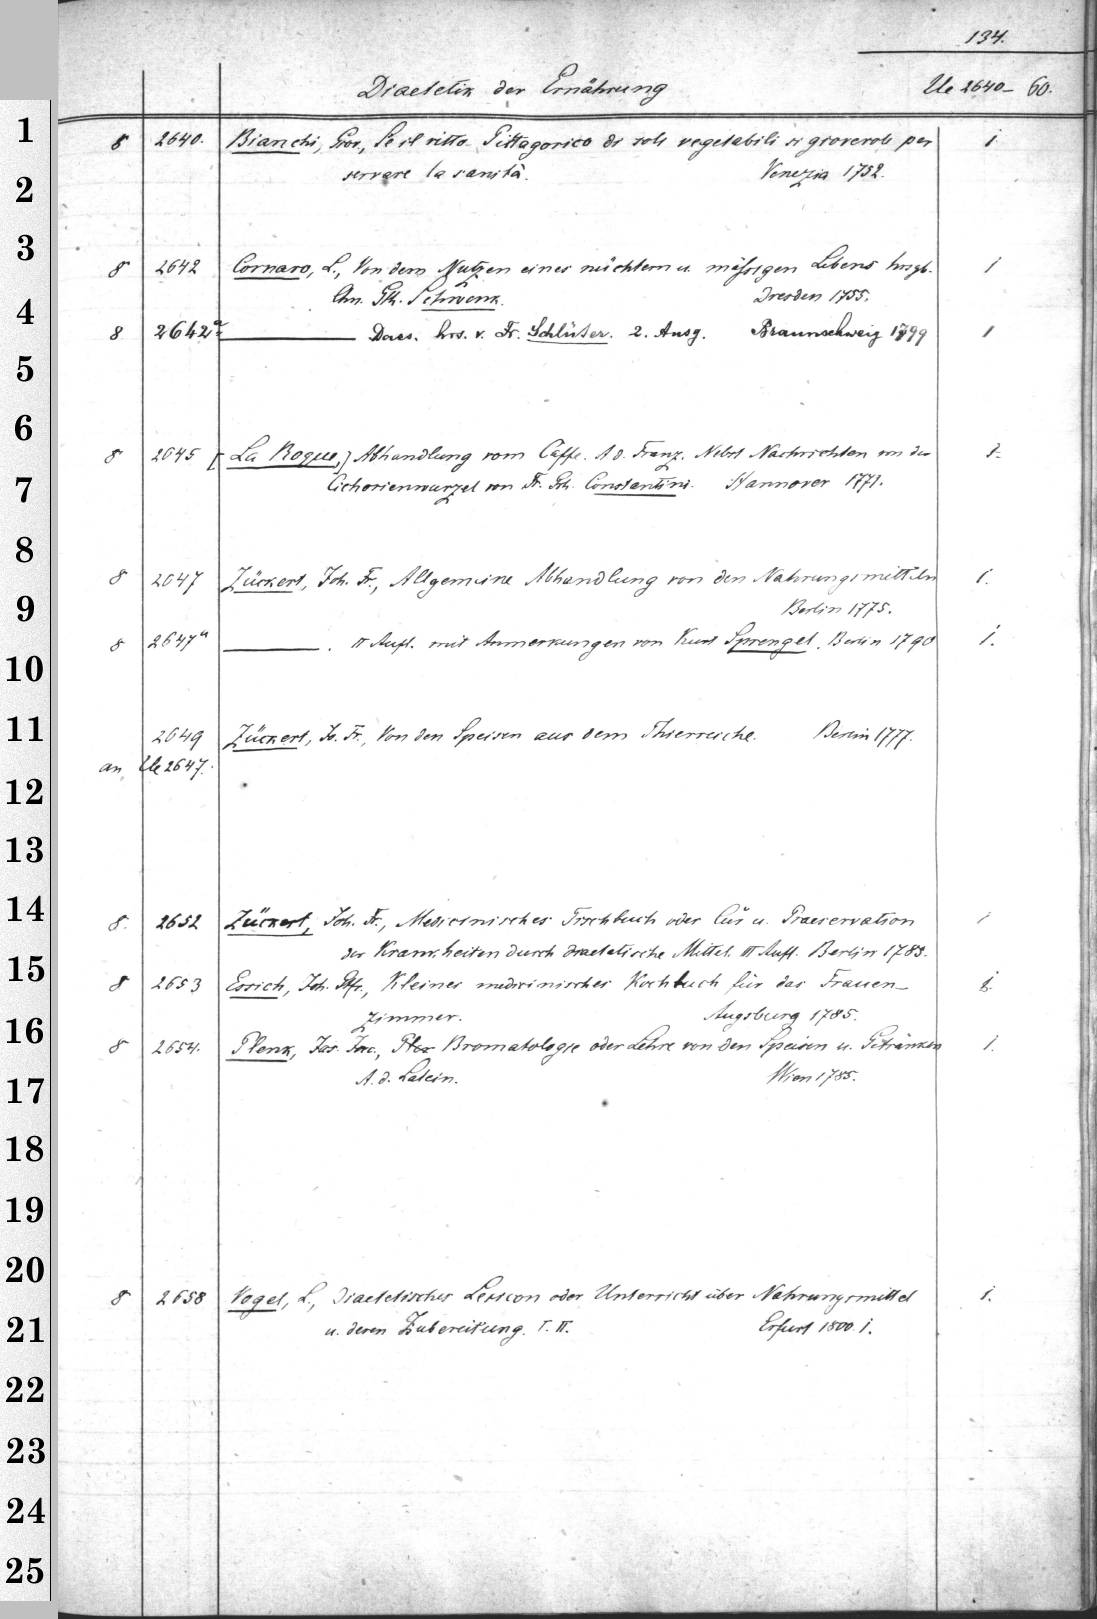 134.
Diaetetik der Ernährung Ue 2640- 60.
1
8 2640. Bianchi, Giov., Se il vitto Pittagorico di soli vegetabili si giovevole per 1
servare la sanità. Venezia 1752.
2
3
8 2642 Cornaro, L., Von dem Nutzen eines nüchtern u. mässigen Lebens hrsgb. 1
Chn. Glh. Schwenk. Dresden 1755.
4
8 2642a Dass. hrs. v. Fr. Schlüter. 2. Ausg. Braunschweig 1799 1
5
6
8 2645 [La Roque,] Abhandlung vom Caffe. A d. Franz. Nebst Nachrichten von der 1.
Cichorienwurzel von Fr. Gh. Constantini. Hannover 1771.
7
8
8 2647 Zückert, Joh. Fr., Allgemeine Abhandlung von den Nahrungsmitteln 1.
Berlin 1775.
9
8 2647a . II Aufl. mit Anmerkungen von Kurt Sprengel. Berlin 1790 1.
10
11
2649 Zückert, Jo. Fr., Von den Speisen aus dem Thierreiche. Berlin 1777.
an Ue 2647.
12
13
14
8. 2652 Zückert, Joh. Fr., Medicinisches Tischbuch oder Cur u. Praeservation 1
der Krankheiten durch diaetetische Mittel. II Aufl. Berlin 1785.
15
8 2653 Essich, Joh. Gfr., Kleines medicinisches Kochbuch für das Frauen- 1.
zimmer. Augsburg 1785.
16
8 2654. Plenk, Jos. Jac., Bromatologie oder Lehre von den Speisen u. Getränken 1.
A. d. Latein. Wien 1785.
17
18
19
20
8 2658 Vogel, L., Diaetetisches Lexicon oder Unterricht über Nahrungsmittel 1.
u. deren Zubereitung. I. II. Erfurt 1800 1.
21
22
23
24
25